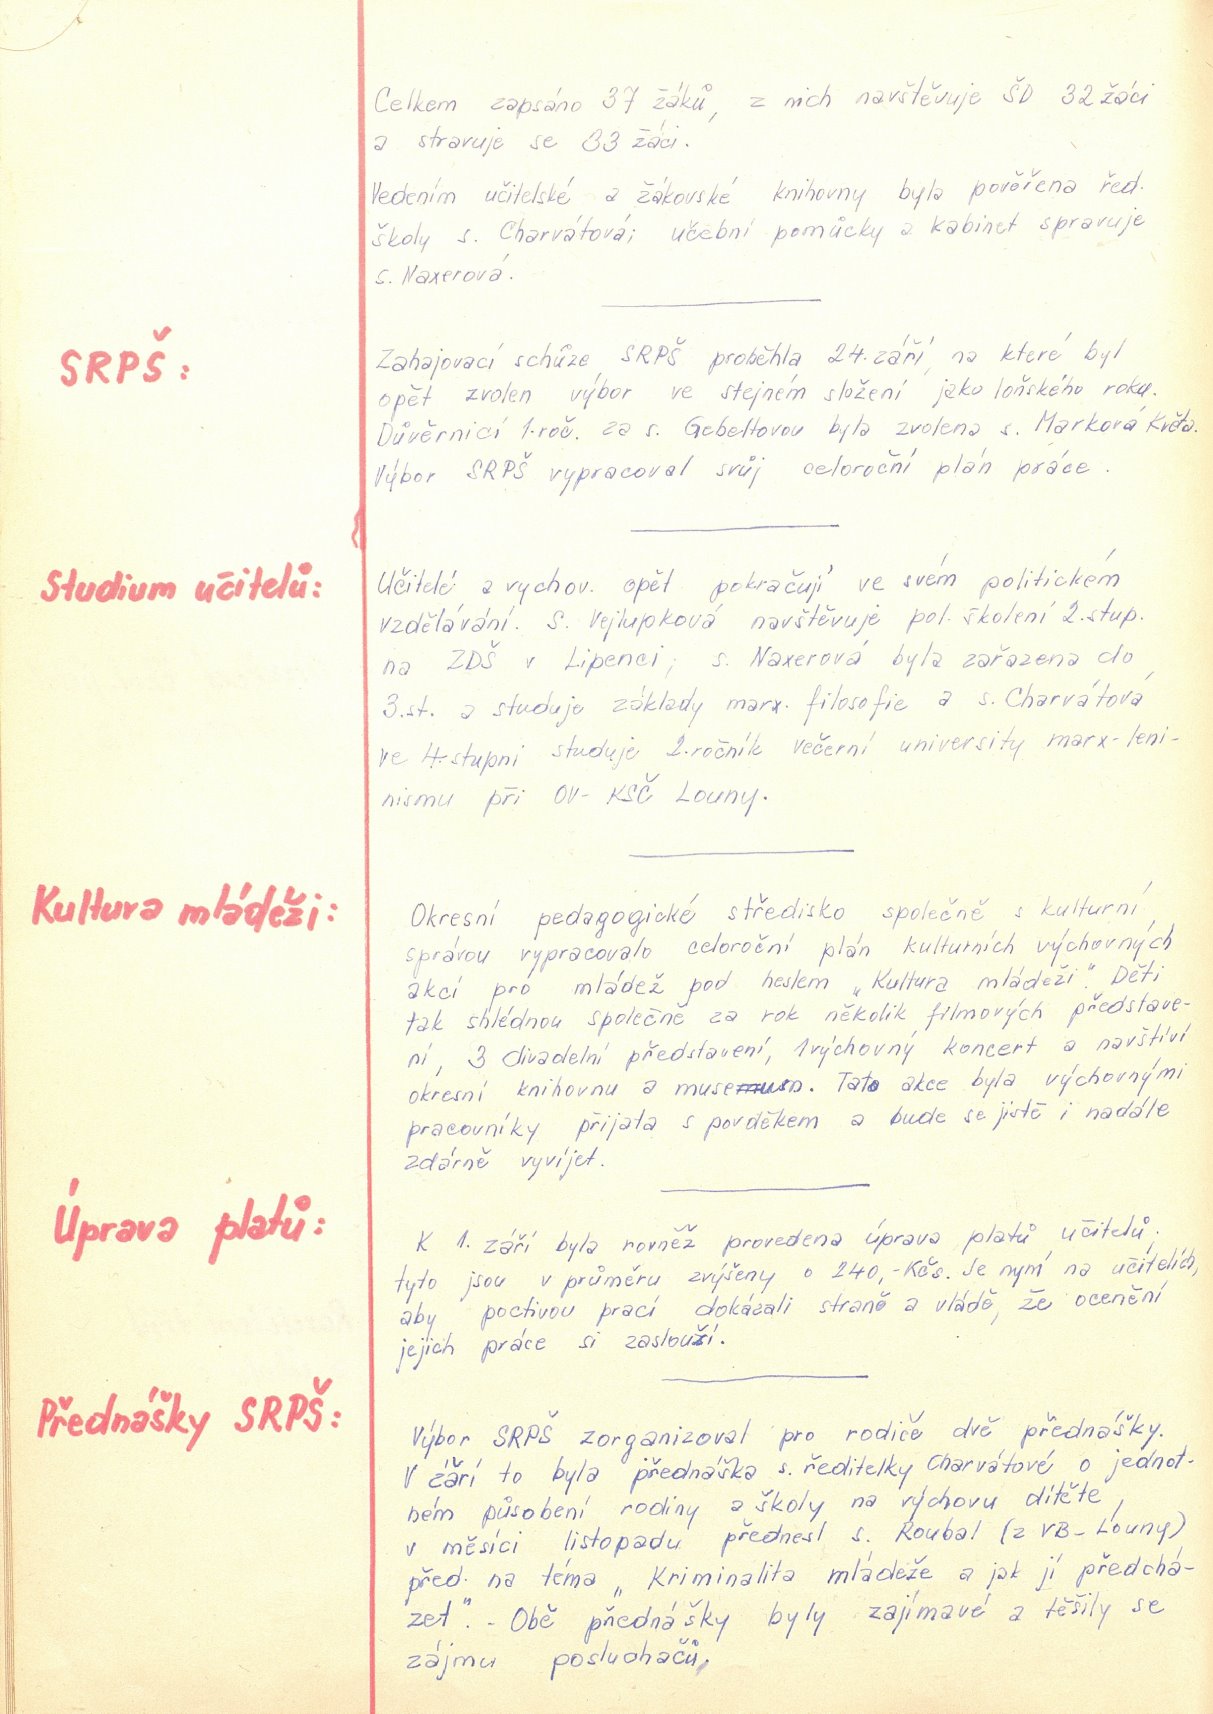 Celkem zapsáno 37 žáků, z nich navštěvuje ŠD 32 žáci
a stravuje se 33 žáci.
Vedením učitelské a žákovské knihovny byla pověřena řed.
školy s. Charvátová; učební pomůcky a kabinet spravuje
s. Naxerová.
SRPŠ:
Zahajovací schůze SRPŠ proběhla 24. září, na které byl
opět zvolen výbor ve stejném složení jako loňského roku.
Důvěrnicí 1. roč. za s. Gebeltovou byla zvolena s. Marková Květa.
Výbor SRPŠ vypracoval svůj celoroční plán práce.
Studium učitelů:
Učitelé a vychov. opět pokračují ve svém politickém
vzdělávání. S. Vejlupková navštěvuje pol. školení 2. stup.
na ZDŠ v Lipenci; s. Naxerová byla zařazena do
3. st. a studuje základy marx. filosofie a s. Charvátová
ve 4. stupni studuje 2. ročník večerní university marx-leni-
nismu při OV-KSČ Louny.
Kultura mládeži:
Okresní pedagogické středisko společně s kulturní
správou vypracovalo celoroční plán kulturních výchovných
akcí pro mládež pod heslem „Kultura mládeži". Děti
tak shlédnou společně za rok několik filmových představe-
ní, 3 divadelní představení, 1 výchovný koncert a navštíví
okresní knihovnu a museum. Tato akce byla výchovnými
pracovníky přijata s povděkem a bude se jistě i nadále
zdárně vyvíjet.
Úprava platů:
K 1. září byla rovněž provedena úprava platů učitelů,
tyto jsou v průměru zvýšeny o 240,-Kčs. Je nyní na učitelích,
aby poctivou prací dokázali straně a vládě, že ocenění
jejich práce si zaslouží.
Přednášky SRPŠ:
Výbor SRPŠ zorganizoval pro rodiče dvě přednášky.
V září to byla přednáška s. ředitelky Charvátové o jednot-
ném působení rodiny a školy na výchovu dítěte,
v měsíci listopadu přednesl s. Roubal (z VB-Louny)
před. na téma „Kriminalita mládeže a jak jí předchá-
zet". - Obě přednášky byly zajímavé a těšily se
zájmu posluchačů.